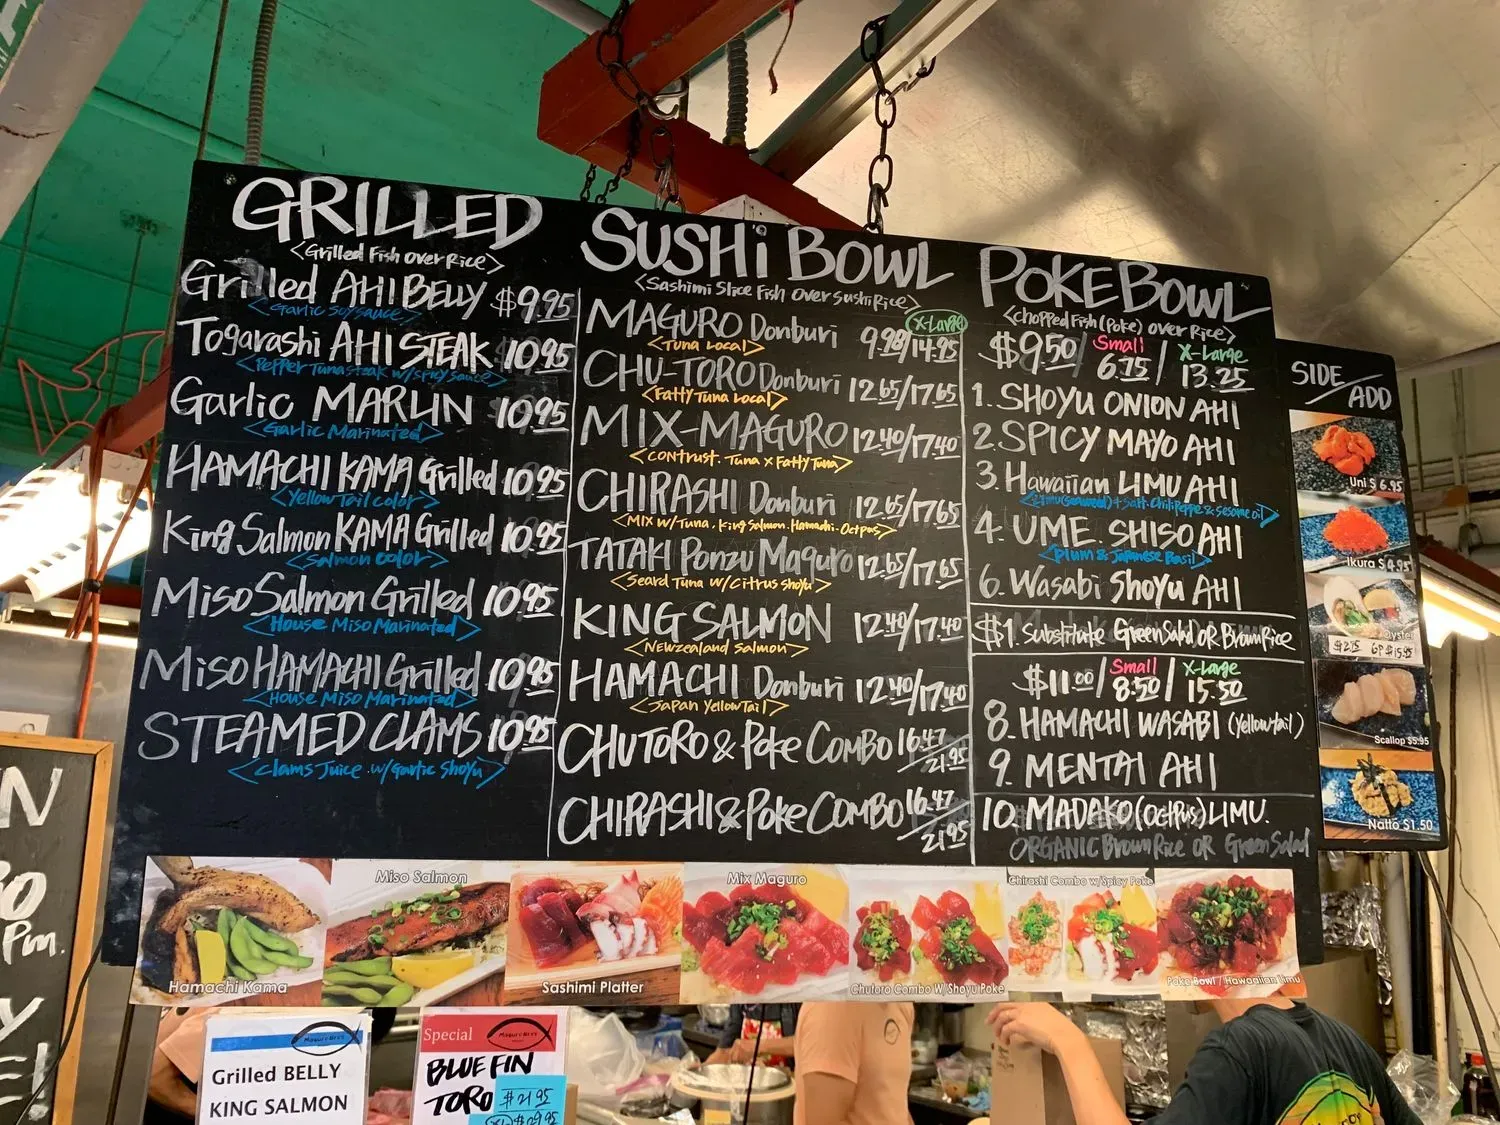 GRILLED
<Grilled Fish Over Rice>
Grilled AHI BELLY $9.95
<Garlic Soysauce>
Togarashi AHI STEAK 10.95
<Pepper Tuna steak w/ spicy sauce>
Garlic MARLIN 10.95
<Garlic Marinated>
HAMACHI KAMA Grilled 10.95
<Yellow Tail color>
King Salmon KAMA Grilled 10.95
<Salmon color>
Miso Salmon Grilled 10.95
<House Miso Marinated>
Miso HAMACHI Grilled 10.95
<House Miso Marinated>
STEAMED CLAMS 10.95
<Clams Juice w/ Garlic Shoyu>
SUSHi BOWL
<Sashimi Slice Fish Over Sushi Rice>
X-Large
MAGURO Donburi 9.98/14.95
<Tuna Local>
CHU-TORO Donburi 12.65/17.65
<Fatty Tuna Local>
MIX-MAGURO 12.40/17.40
<Contrust. Tuna x Fatty Tuna>
CHIRASHI Donburi 12.65/17.65
<MIX w/ Tuna, King Salmon. Hamachi. Octpus>
TATAKI Ponzu Maguro 12.65/17.65
<Seard Tuna w/ Citrus Shoyu>
KING SALMON 12.40/17.40
<Newzealand Salmon>
HAMACHI Donburi 12.40/17.40
<Japan Yellow Tail>
CHUTORO & Poke COMBO 16.47/21.95
CHIRASHI & Poke COMBO 16.47/21.95
POKE BOWL
<Chopped Fish (Poke) Over Rice>
$9.50/ Small 6.75 / X-Large 13.25
1. SHOYU ONION AHI
2. SPICY MAYO AHI
3. Hawaiian LIMU AHI
4. UME. SHISO AHI
<Plum & Japanese Basil>
6. Wasabi Shoyu AHI
$1. Substitute Green Salad OR Brown Rice
$11.00/ Small 8.50 / X-Large 15.50
8. HAMACHI WASABI (Yellowtail)
9. MENTAI AHI
10. MADAKO (Octpus) LIMU.
ORGANIC Brown Rice OR Green Salad
SIDE/ADD
Uni $ 6.95
Ikura $ 4.95
Oyster
$2.75 6P $15.95
Scallop $5.95
Natto $1.50
Hamachi Kama
Miso Salmon
Sashimi Platter
Mix Maguro
Chutoro Combo W/Shoyu Poke
Chirashi Combo w/Spicy Poke
Poke Bowl / Hawaiian Limu
Grilled BELLY
KING SALMON
Special
BLUE FIN
TORO $21.95
Pm.